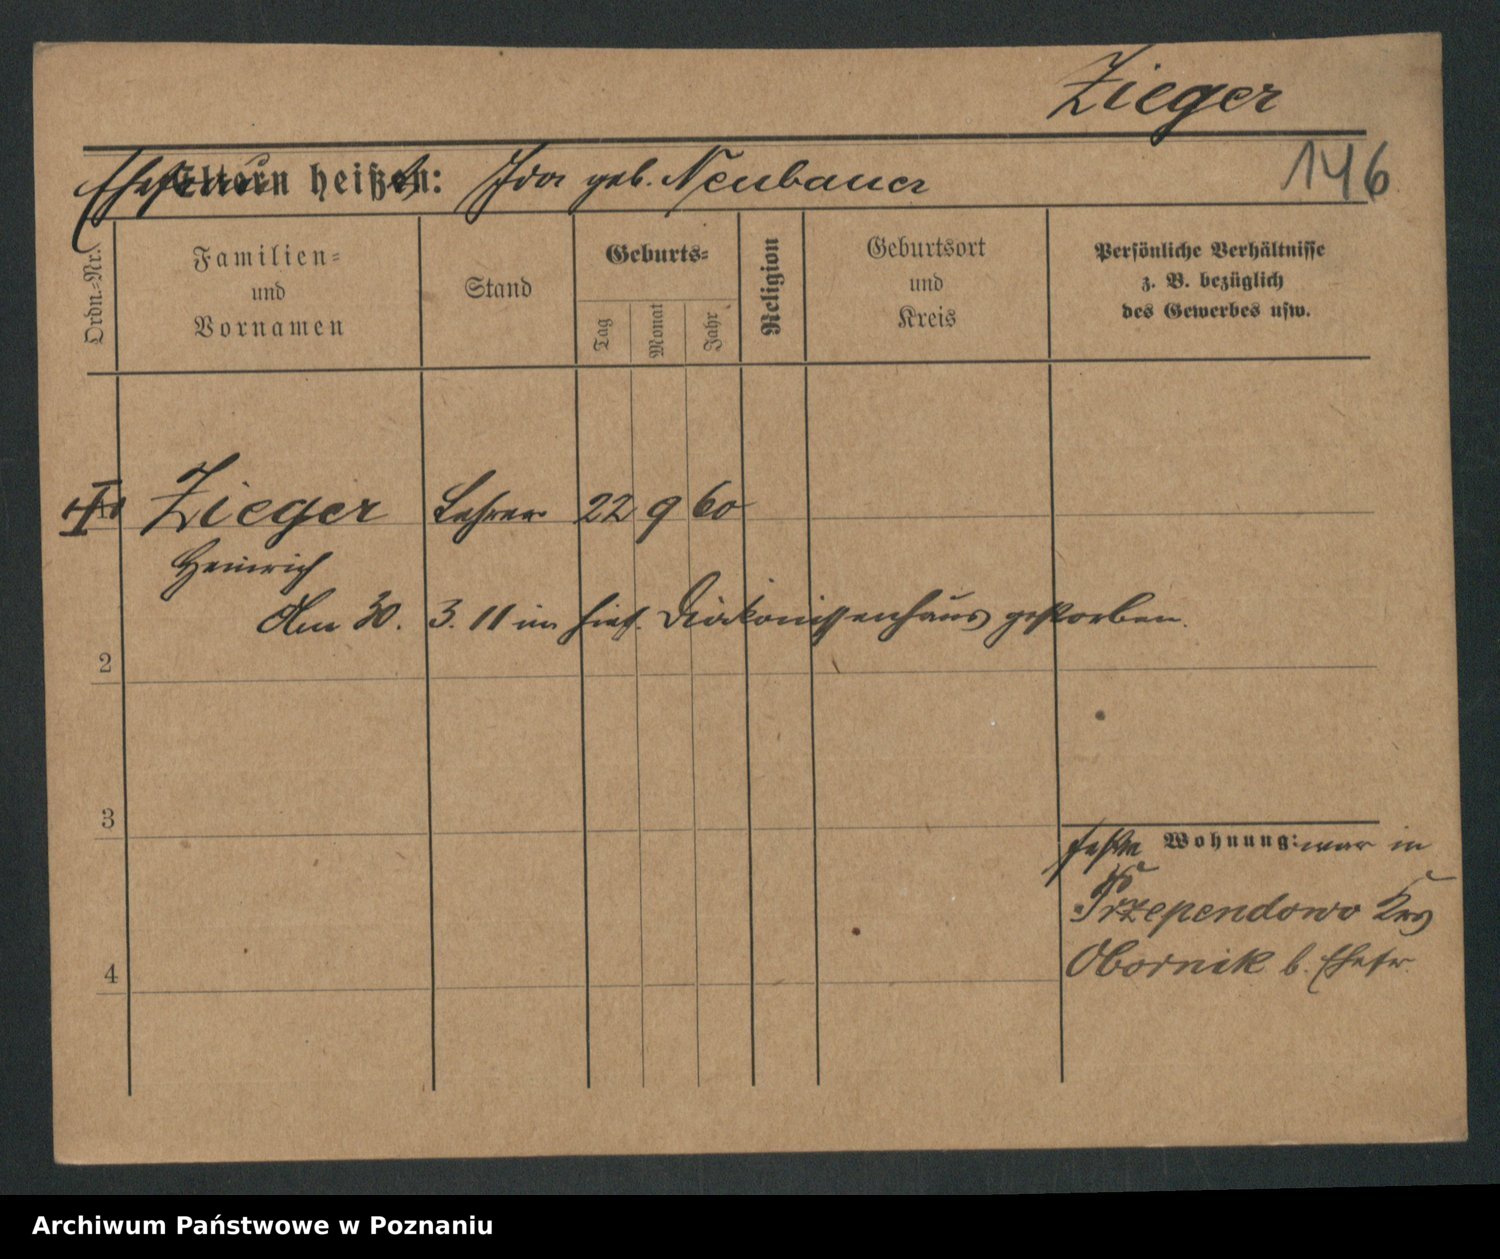 Zieger
Ehefrau Eltern heißen: Ida geb. Neubauer
146
Ordn.=Nr.
Familien=
und
Vornamen
Stand
Geburts=
Tag
Monat
Jahr
Religion
Geburtsort
und
Kreis
Persönliche Verhältnisse
z. B. bezüglich
des Gewerbes usw.
Zieger Lehrer 22 9 60
Heinrich
Am 30. 3. 11 im hies. Diakonissenhaus gestorben.
2
3
Wohnung: war in
Przependowo Krs
4
Obornik b. Ehefr.
Archiwum Państwowe w Poznaniu